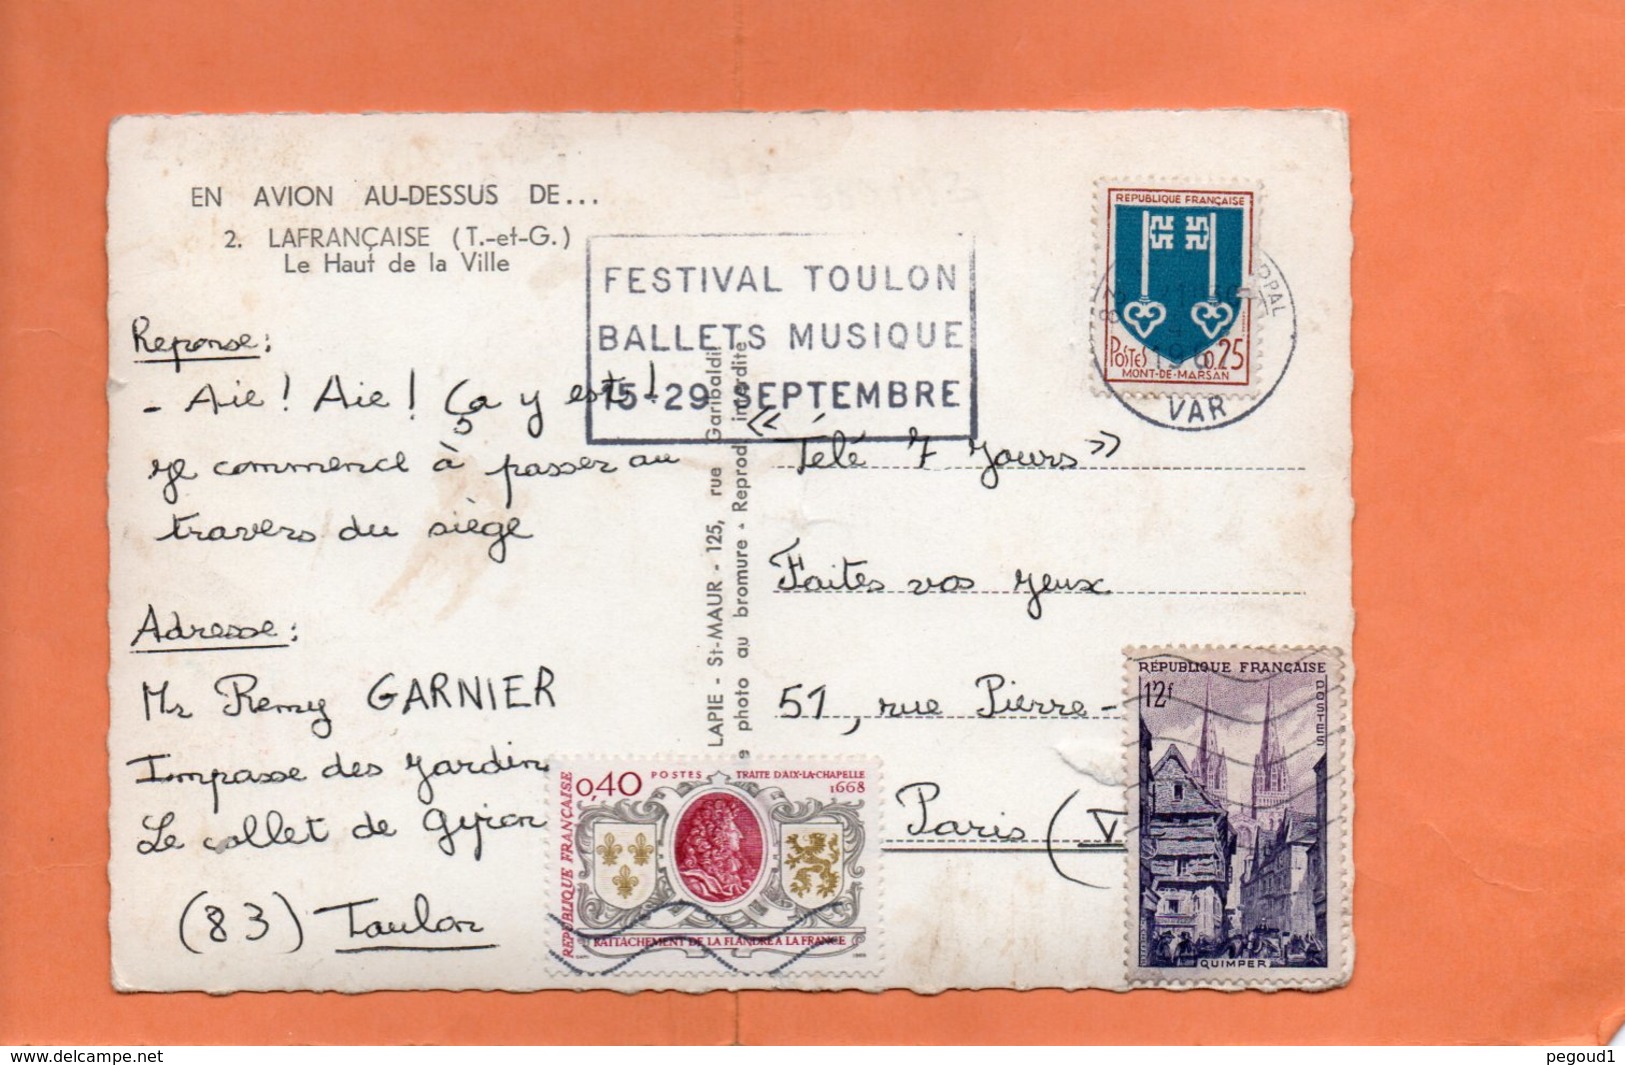 EN AVION AU-DESSUS DE...
2. LAFRANÇAISE (T.-et-G.)
Le Haut de la Ville
FESTIVAL TOULON
BALLETS MUSIQUE
15-29 SEPTEMBRE
REPUBLIQUE FRANÇAISE
POSTES 0.25
MONT-DE-MARSAN
PPAL
VAR
Reponse :
- Aie ! Aie ! Ça y est !
je commence à passer au
travers du siège
Adresse :
Mr Remy GARNIER
Impasse des jardin
Le collet de Gipon
(83) Toulon
LAPIE - St-MAUR - 125, rue Garibaldi
photo au bromure - Reprod. interdite
« Télé 7 Jours »
Faites vos jeux
51, rue Pierre-
Paris (V
RÉPUBLIQUE FRANÇAISE
12f
POSTES
QUIMPER
0,40 POSTES TRAITE D'AIX-LA-CHAPELLE
1668
REPUBLIQUE FRANÇAISE
RATTACHEMENT DE LA FLANDRE A LA FRANCE
delcampe.net
pegoud1